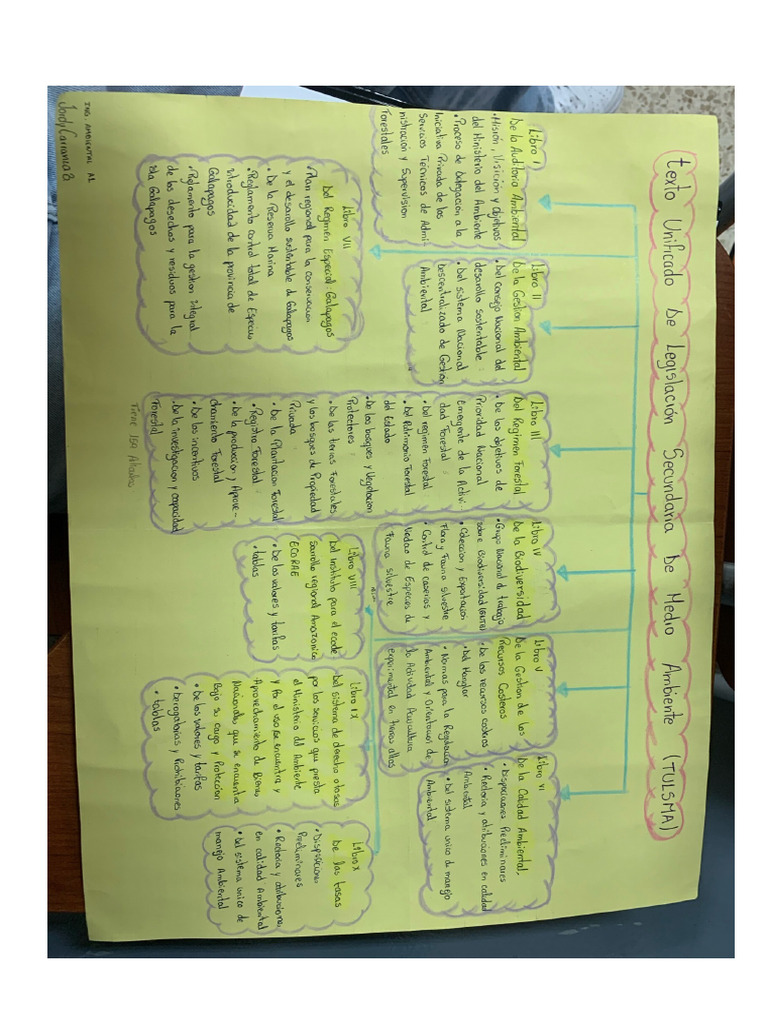 texto Unificado De Legislación Secundaria De Medio Ambiente (TULSMA)
Libro I
De la Auditoria Ambiental
• Misión, Visición y objetivos
del Ministerio del Ambiente
• Proceso de delegacion a la
Iniciativa Privada de los
Servicios Técnicos de Admi
nistracion y Supervision
Forestales
Libro II
De la Gestion Ambiental
• Del consejo Nacional del
desarrollo sustentable:
• Del sistema Nacional
Descentralizado de Gestion
Ambiental
Libro III
Del Regimen Forestal
• De los objetivos de
Prioridad Nacional
Emergente de la Activi-
dad Forestal
• Del regimen Forestal
• Del Patrimonio Forestal
del Estado
• De los bosques y Vegetacion
Protectores
• De las tierras Forestales
y los bosques de Propiedad
Privada
• De la Plantacion Forestal
• Registro Forestal
• De la produccion y Aprove-
chamiento Forestal
• De los incentivos
• De la investigacion y capacidad
Forestal
Tiene 169 Articulos
Libro IV
De la Biodiversidad
• Grupo Nacional de trabajo
sobre Biodiversidad
• Coleccion y Exportacion
Flora y Fauna silvestre
• Control de caserias y
Vedado de Especies de
Fauna silvestre
Libro V
De la Gestion de los
Recursos Costeros
• De los recursos costeros
• Del Manglar
• Normas para la Regulacion
Ambiental y Orientacion de
la Actividad Acuicultura
experimental en tierras altas
Libro VI
De la Calidad Ambiental.
• Disposiciones Preliminares
• Rectoria y atribuciones en calidad
Ambiental
• Del sistema unico de manejo
Ambiental
Libro VII
Del Regimen Especial: Galapagos
• Plan regional para la conservacion
y el desarollo sustentable de Galapagos
• De la Reserva Marina
• Reglamento control total de Especies
introducidad de la provincia de
Galapagos
• Reglamento para la gestion integral
de los desechos y residuos para la
Isla Galapagos
Libro VIII
Del instituto para el ecode
sarrollo regional Amazonico
ECORAE
• De los valores y tarifas
• tablas
Libro IX
• Del sistema de derecho o tasas
por los servicios que presta
el Ministerio del Ambiente
y Por el uso
Aprovechamiento de Bienes
Nacionales que se encuentra
Bajo su cargo y Proteccion
• De los valores y tarifas
• Derogatorias y Prohibiciones
• tablas
Libro X
De las tasas
• Disposicion:
Preliminares
• Rectoria y atribuciones
en calidad Ambiental
• Del sistema unico de
manejo Ambiental
ING. AMBIENTAL A1
Jordy Carranza B